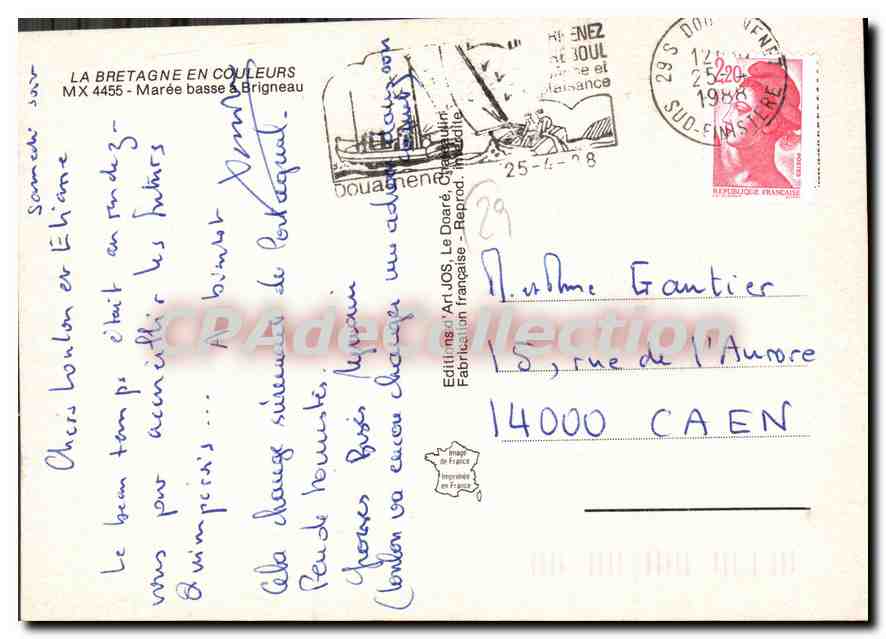 LA BRETAGNE EN COULEURS
MX 4455 - Marée basse à Brigneau
Samedi soir
Chers Loulou et Eliane
Le beau temps était au rendez-
vous pour accueillir les futurs
Quimpérois... A bientôt
Cela change sûrement de
Peu de touristes.
Grosses Bises
(Loulou va encore changer une adresse dans son
Editions d'Art JOS, Le Doaré, Châteaulin
Fabrication française - Reprod. interdite
Image
de France
Imprimée
en France
Douarnenez
25-4-88
29 S DOUARNENEZ
25-4
1988
SUD-FINISTERE
2,20
POSTES
REPUBLIQUE FRANÇAISE
29
M. et Mme Gautier
15, rue de l'Aurore
14000 CAEN
CPAdeCollection